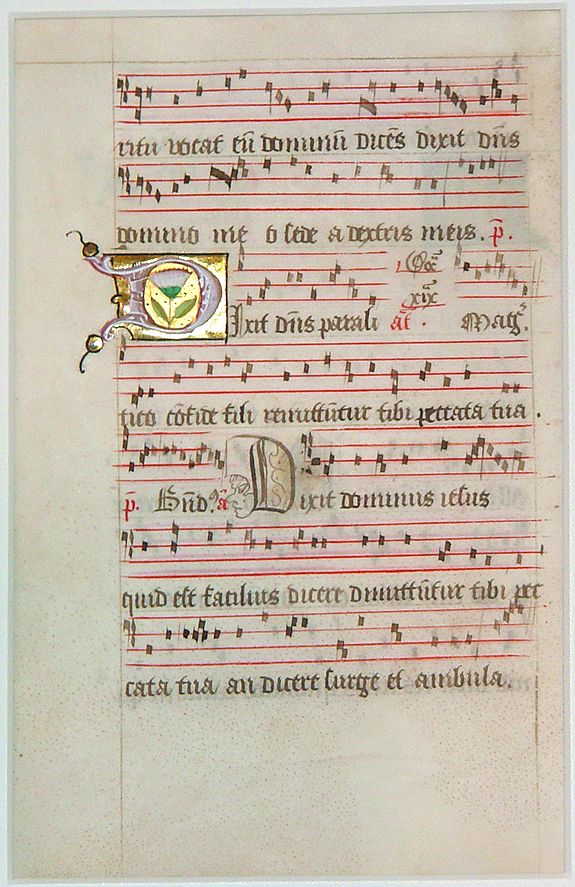 ritu vocat eū dominū dicēs dixit dn̄s
domino me o sede a dextris meis. p̄.
Dixit dn̄s parali at̄. Magt̄.
xix
tico cōfide fili remittūtur tibi peccata tua.
p̄. Bn̄d. ā Dixit dominus iesus
quid est facilius dicere dimittūtur tibi pec
cata tua an dicere surge et ambula.